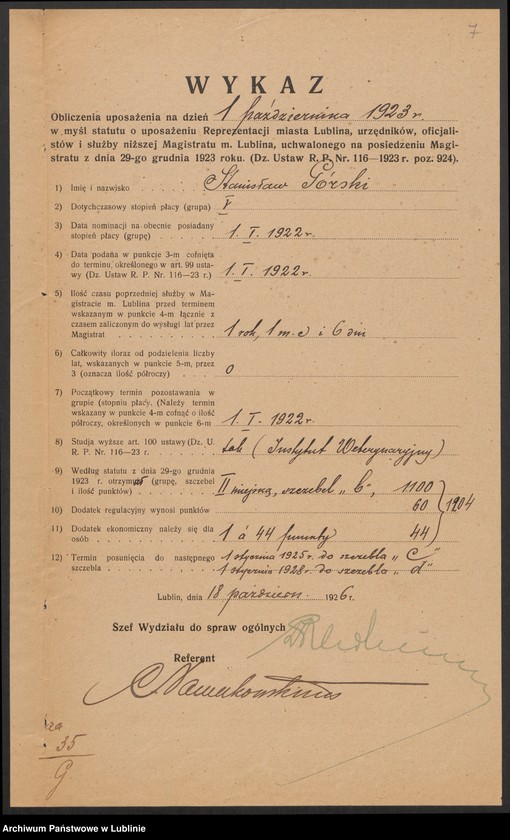 7
WYKAZ
Obliczenia uposażenia na dzień 1 października 1923 r.
w myśl statutu o uposażeniu Reprezentacji miasta Lublina, urzędników, oficjali-
stów i służby niższej Magistratu m. Lublina, uchwalonego na posiedzeniu Magi-
stratu z dnia 29-go grudnia 1923 roku. (Dz. Ustaw R. P. Nr. 116—1923 r. poz. 924).
1) Imię i nazwisko Stanisław Górski
2) Dotychczasowy stopień płacy (grupa) V
3) Data nominacji na obecnie posiadany
stopień płacy (grupę) 1. I. 1922 r.
4) Data podana w punkcie 3-m cofnięta
do terminu, określonego w art. 99 usta-
wy (Dz. Ustaw R. P. Nr. 116—23 r.) 1. I. 1922 r.
5) Ilość czasu poprzedniej służby w Ma-
gistracie m. Lublina przed terminem
wskazanym w punkcie 4-m łącznie z
czasem zaliczonym do wysługi lat przez
Magistrat 1 rok, 1 m-c i 6 dni
6) Całkowity iloraz od podzielenia liczby
lat, wskazanych w punkcie 5-m, przez
3 (oznacza ilość półroczy) 0
7) Początkowy termin pozostawania w
grupie (stopniu płacy. (Należy termin
wskazany w punkcie 4-m cofnąć o ilość
półroczy, określonych w punkcie 6-m 1. I. 1922 r.
8) Studja wyższe art. 100 ustawy (Dz. U.
R. P. Nr. 116—23 r. tak (Instytut Weterynaryjny)
9) Według statutu z dnia 29-go grudnia
1923 r. otrzymał (grupę, szczebel
i ilość punktów) II miejską, szczebel „b", 1100
10) Dodatek regulacyjny wynosi punktów 60 1204
11) Dodatek ekonomiczny należy się dla
osób 1 à 44 punkty 44
12) Termin posunięcia do następnego
szczebla 1 stycznia 1925 r. do szczebla „c"
1 stycznia 1928 r. do szczebla „d"
Lublin, dnia 18 październ. 1926 r.
Szef Wydziału do spraw ogólnych
Referent
35
G
Archiwum Państwowe w Lublinie